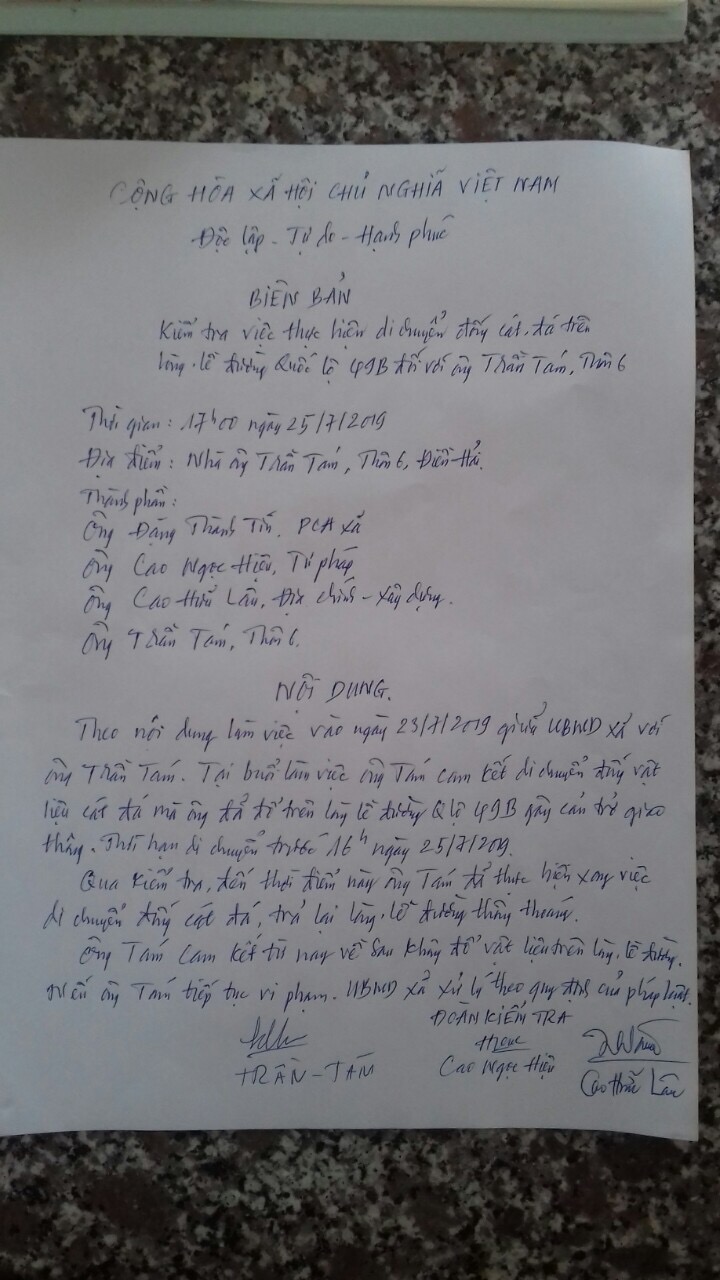 CỘNG HÒA XÃ HỘI CHỦ NGHĨA VIỆT NAM
Độc lập - Tự do - Hạnh phúc
BIÊN BẢN
Kiểm tra việc thực hiện di chuyển đống cát, đá trên
lòng, lề đường Quốc lộ 49B đối với ông Trần Tám, Thôn 6
Thời gian: 17h00 ngày 25/7/2019
Địa điểm: Nhà ông Trần Tám, Thôn 6, Điền Hải.
Thành phần:
Ông Đặng Thành Tín, PCA xã
Ông Cao Ngọc Hiệu, Tư pháp
Ông Cao Hữu Lân, Địa chính - xây dựng.
Ông Trần Tám, Thôn 6.
NỘI DUNG.
Theo nội dung làm việc vào ngày 23/7/2019 giữa UBND xã với
ông Trần Tám. Tại buổi làm việc ông Tám cam kết di chuyển đống vật
liệu cát đá mà ông đã đổ trên lòng lề đường Q lộ 49B gây cản trở giao
thông. Thời hạn di chuyển trước 16h ngày 25/7/2019.
Qua kiểm tra, đến thời điểm này ông Tám đã thực hiện xong việc
di chuyển đống cát đá, trả lại lòng, lề đường thông thoáng.
Ông Tám cam kết từ nay về sau không đổ vật liệu trên lòng, lề đường.
Nếu ông Tám tiếp tục vi phạm. UBND xã xử lý theo quy định của pháp luật.
ĐOÀN KIỂM TRA
TRẦN - TÁM
Cao Ngọc Hiệu
Cao Hữu Lân